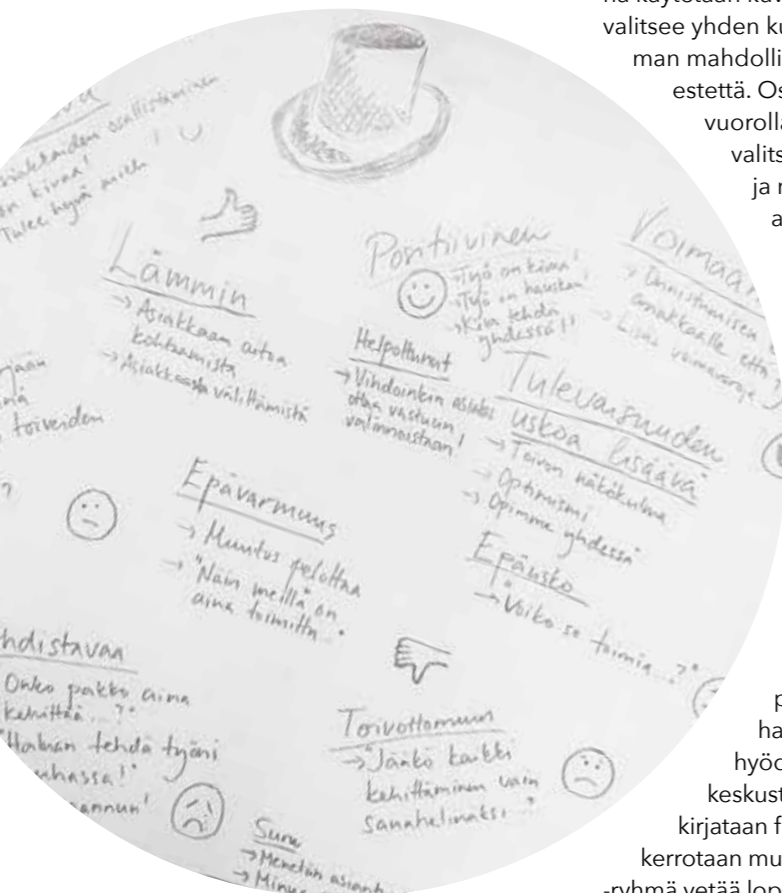 valitsee yhden ku
man mahdolli
estettä. Os
vuorolla
valits
ja
asiakkaiden osallistaminen
on kivaa!
Tulee hyvä mieli
Lämmin
→ Asiakkaan aitoa
kohtaamista
→ Asiakkaasta välittämistä
Positiivinen
→ Työ on kivaa!
→ Työ on hauskaa!
→ Kiva tehdä
yhdessä!!
Voimaan
→ Onnistumisen
asiakkaalle että
→ Lisää voimavaroja
Helpottunut
→ Vihdoinkin asiakas
ottaa vastuun
valinnoistaan!
Tulevaisuuden
uskoa lisäävä
→ Toivon näkökulma
→ Optimismi
→ Opimme yhdessä
toiveiden
Epävarmuus
→ Muutos pelottaa
→ "Näin meillä on
aina toimittu..."
Epäusko
→ "Voiko se toimia...?"
hdistavaa
Onko pakko aina
kehittää...?"
"Haluan tehdä työni
rauhassa!"
Toivottomuus
→ "Jääkö kaikki
kehittäminen vain
sanahelinäksi...?"
Suru
→ Menetän asiant
→ Minu
p
ha
hyöd
keskust
kirjataan f
kerrotaan mu
-ryhmä vetää lop